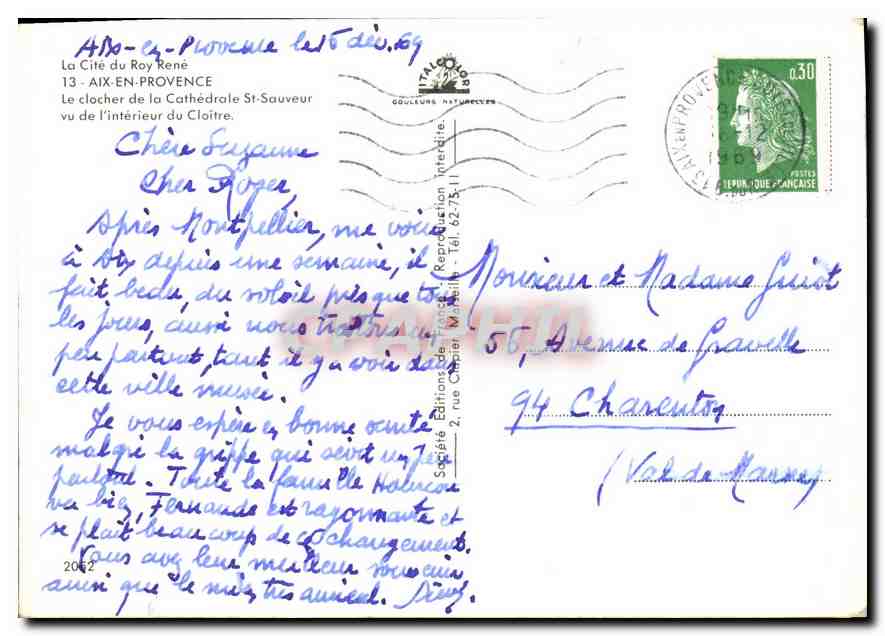 Aix-en-Provence le 16 déc. 69
La Cité du Roy René
13 - AIX-EN-PROVENCE
Le clocher de la Cathédrale St-Sauveur
vu de l'intérieur du Cloître.
Chère Suzanne
Cher Roger,
Après Montpellier, me voici
à Aix depuis une semaine, il
fait beau, du soleil presque tous
les jours, aussi nous trottons un
peu partout, tant il y a voir dans
cette ville musée.
Je vous espère en bonne santé
malgré la grippe qui sévit un peu
partout. Toute la famille
va bien, Fernande est rayonnante et
se plait beaucoup de ce changement.
Vous avez leur meilleur souvenir
ainsi que le mien très amical.
2052
ITALCOLOR
COULEURS NATURELLES
Société Editions de France - Reproduction Interdite.
2, rue Clapier Marseille - Tél. 62-75-11
0,30
POSTES
REPUBLIQUE FRANÇAISE
13 AIX EN PROVENCE
16-12
1969
Monsieur et Madame Guiot
55, Avenue de Gravelle
94 Charenton
(Val de Marne)